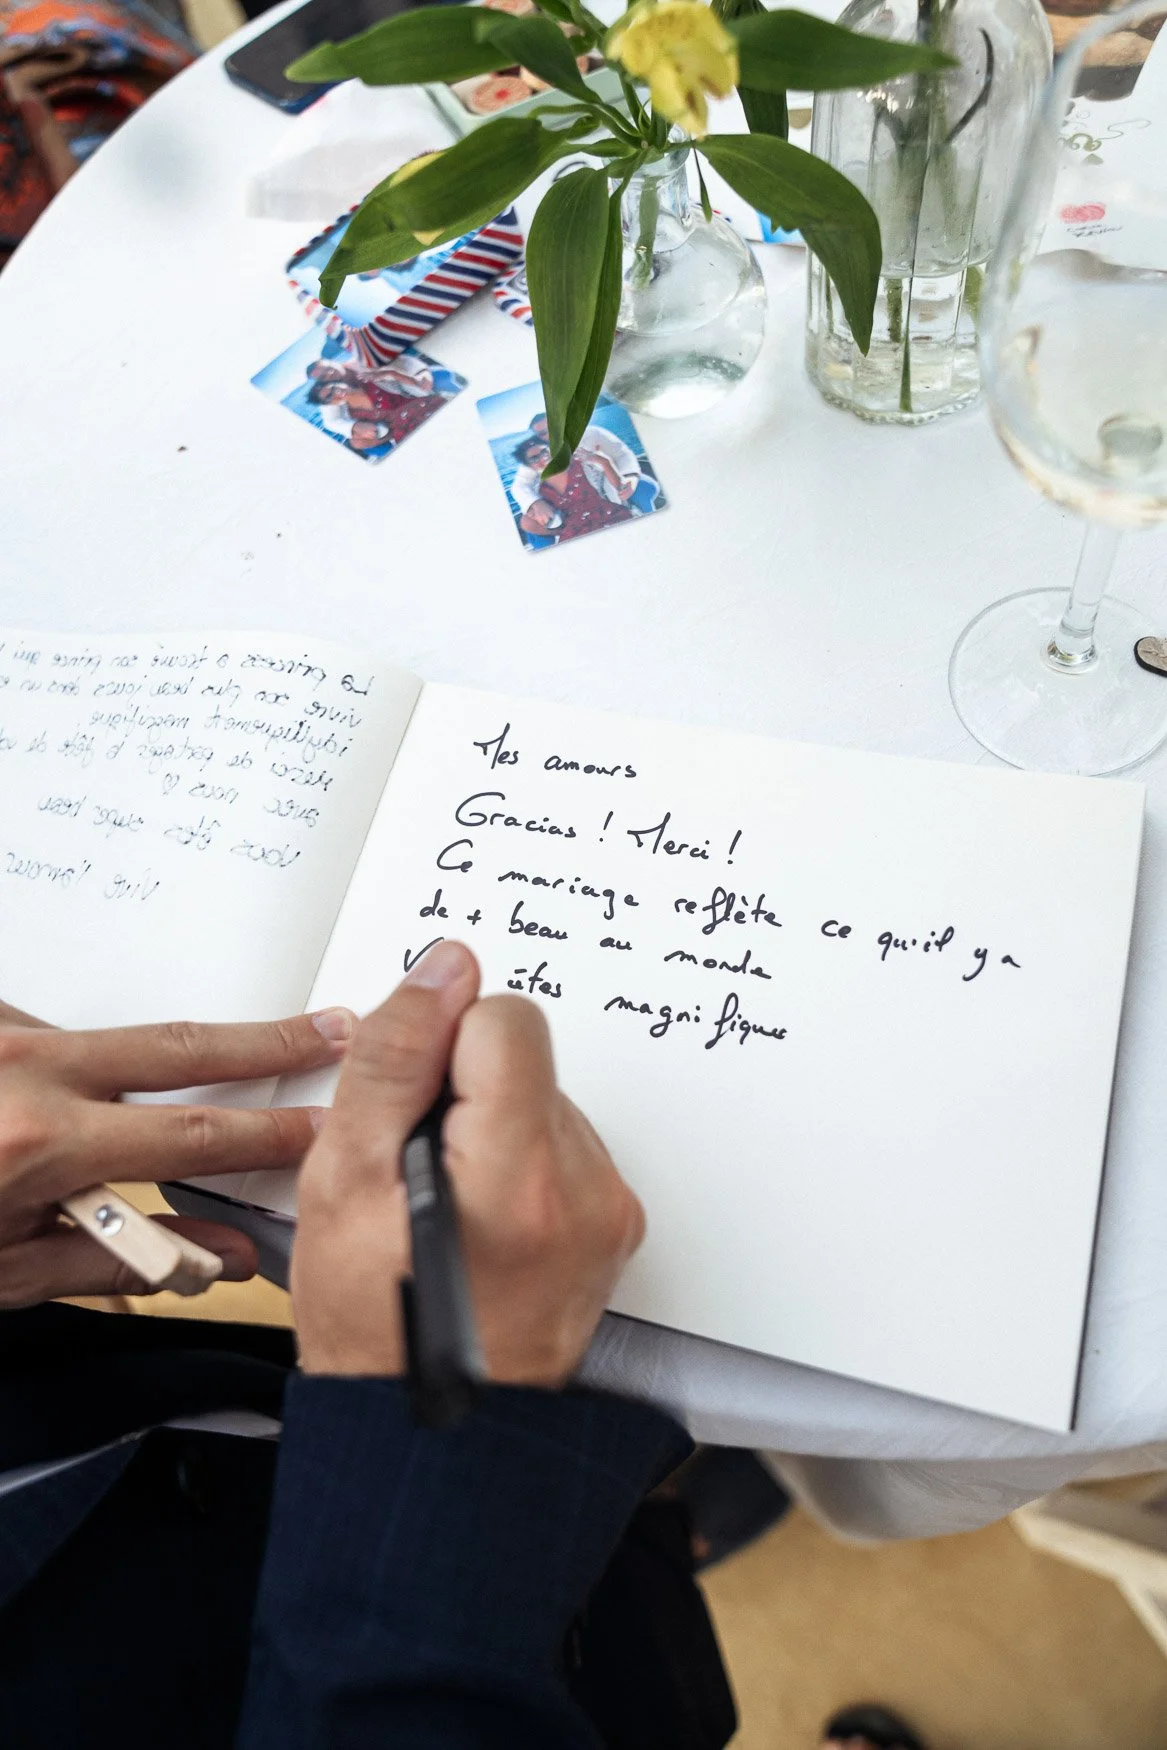 La princess a trouvé son prince qui
vivre son plus beau jours dans un
idylliquement magnifique.
Merci de partager la fête de
avec nous ♡
Vous êtes super beau
Vive l'amour
Mes amours
Gracias ! Merci !
Ce mariage reflète ce qu'il y a
de + beau au monde
êtes magnifiques